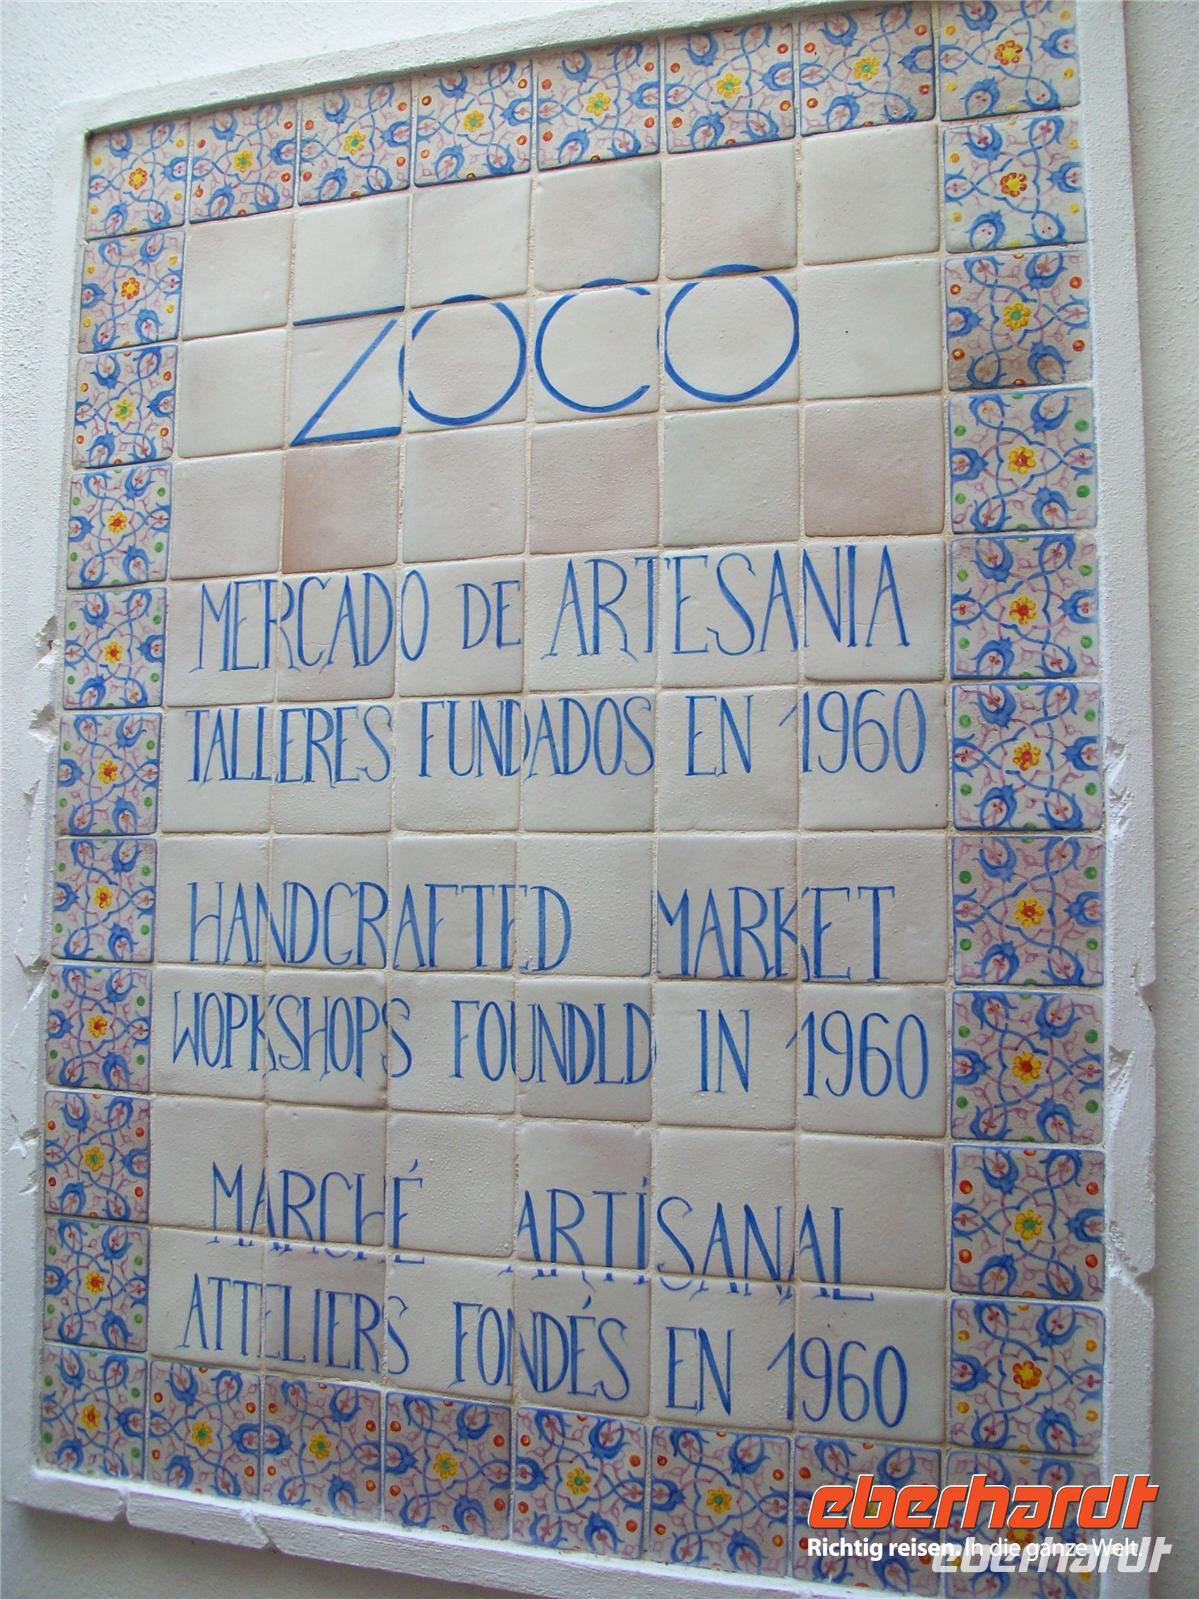 ZOCO
MERCADO DE ARTESANIA
TALLERES FUNDADOS EN 1960
HANDCRAFTED MARKET
WOPKSHOPS FOUNDLD IN 1960
MARCHÉ ARTÍSANAL
ATTELIERS FONDÉS EN 1960
eberhardt
Richtig reisen. In die ganze Welt.
eberhardt